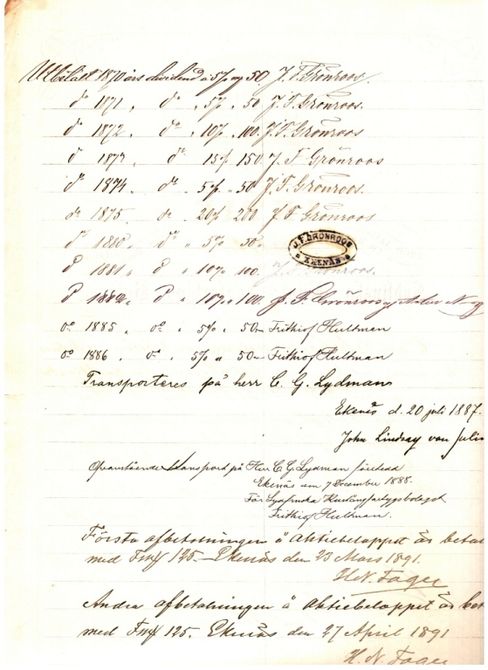 Utbetalt 1870 års dividend a 5% og 50 J. F. Grönroos.
do 1871 , do , 5% , 50 J. F. Grönroos.
do 1872 , do , 10% , 100 J. F. Grönroos.
do 1873 , do , 15% 150 J. F. Grönroos
do 1874 , do , 5% , 50 J. F. Grönroos.
do 1875 , do , 20% 200 J. F. Grönroos
do 1880 , do , 5% 50
J. F. GRÖNROOS
EKENÄS
do 1881 , do , 10% 100. J. F. Grönroos.
do 1882 , do , 10% , 100. J. F. Grönroos
do 1885 , do , 5% , 50 Frithiof Hultman
do 1886 , do , 5% , 50 Frithiof Hultman
Transporteres på herr C. G. Lydman
Ekenäs d. 20 juli 1887.
John Lindsay von Julin
Ofvanstående transport på Herr C. G. Lydman
Ekenäs den 7 December 1888.
För Sydfinska Kustångfartygsbolaget
Frithiof Hultman.
Första afbetalningen å aktiebeloppet är betal
med Fmk 125. Ekenäs den 23 Mars 1891.
H. N. Fager
Andra afbetalningen å aktiebeloppet är bet
med Fmk 125. Ekenäs den 27 April 1891
H. N. Fager